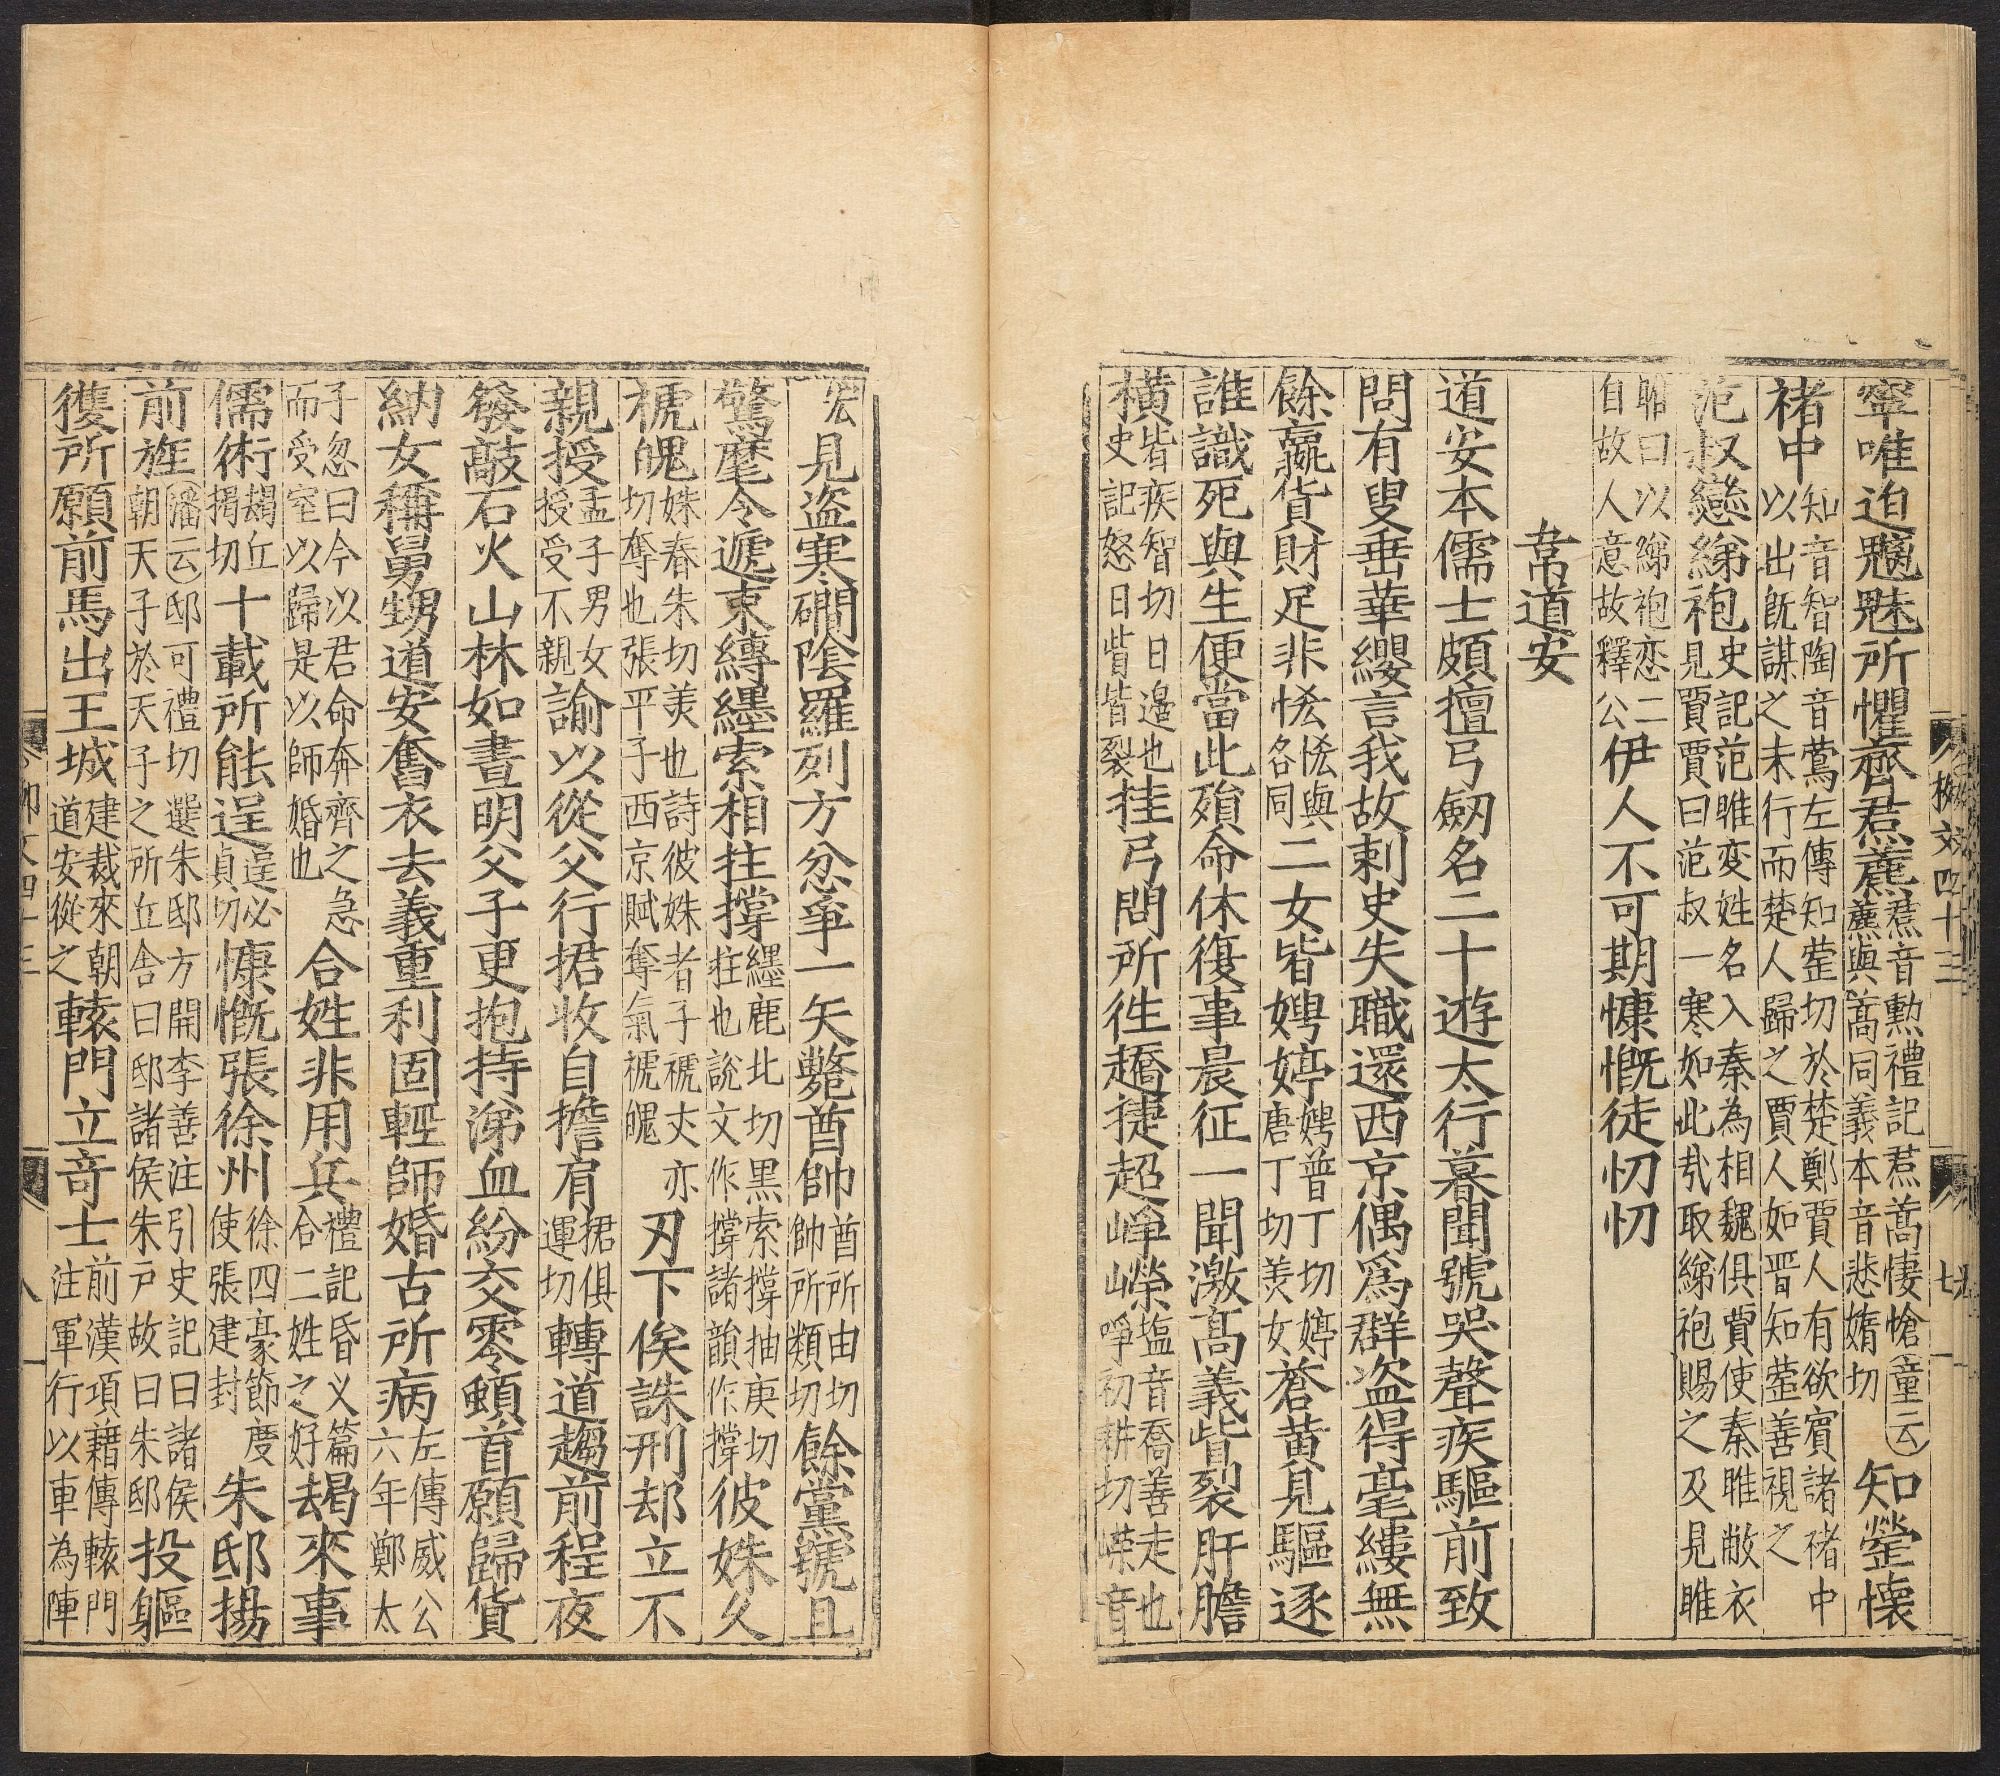 寧唯迫魑魅所懼齊焄藨焄音勲禮記焄蒿悽愴童云藨與蒿同義本音悲嬌切知罃懷
褚中知音智陶音鶯左傳知罃切於楚鄭賈人有欲寘諸褚中以出旣謀之未行而楚人歸之賈人如晉知罃善視之
范叔戀綈袍史記范睢変姓名入秦為相魏俱賈使秦睢敝衣見賈賈曰范叔一寒如此㢤取綈袍賜之及見睢
睢曰以綈袍恋二自故人意故釋公伊人不可期慷慨徒忉忉
韋道安
道安本儒士頗擅弓劒名二十遊太行暮聞號哭聲疾驅前致
問有叟垂華纓言我故刺史失職還西京偶爲群盗得毫縷無
餘羸貨財足非恡恡與各同二女皆娉婷娉普丁切婷唐丁切美女蒼黄見驅逐
誰識死與生便當此殞命休復事晨征一聞激髙義眥裂肝膽
橫眥疾智切目邉也史記怒目眥皆裂挂弓問所徃趫捷超崢嶸𡺚音喬善走也山崢初耕切嶸音
宏見盗寒磵隂羅列方忿爭一矢斃酋帥酋所由切帥所類切餘黨號且
驚麾令遞束縳纆索相拄撑纆鹿此切黑索撑抽庚切拄也說文作撑諸韻作撑彼姝久
褫魄姝春朱切美也詩彼姝者子褫丈亦切奪也張平子西京賦奪氣褫魄刃下俟誅刑却立不
親授孟子男女授受不親諭以從父行捃收自擔肩捃俱運切轉道趨前程夜
發敲石火山林如晝明父子更抱持涕血紛交零頓首願歸貨
納女稱舅甥道安奮衣去義重利固輕師婚古所病左傳威公六年鄭太
子忽曰今以君命奔齊之急而受室以歸是以師婚也合姓非用兵禮記昏义篇合二姓之好朅來事
儒術朅丘掲切十載所能逞逞必貞切慷慨張徐州徐四豪節度使張建封朱邸揚
前旌潘云邸可禮切選朱邸方開李善注引史記曰諸侯朝天子於天子之所丘舎曰邸諸侯朱戸故曰朱邸投軀
獲所願前馬出王城建裁來朝道安從之轅門立奇士前漢項藉傳轅門注軍行以車為陣